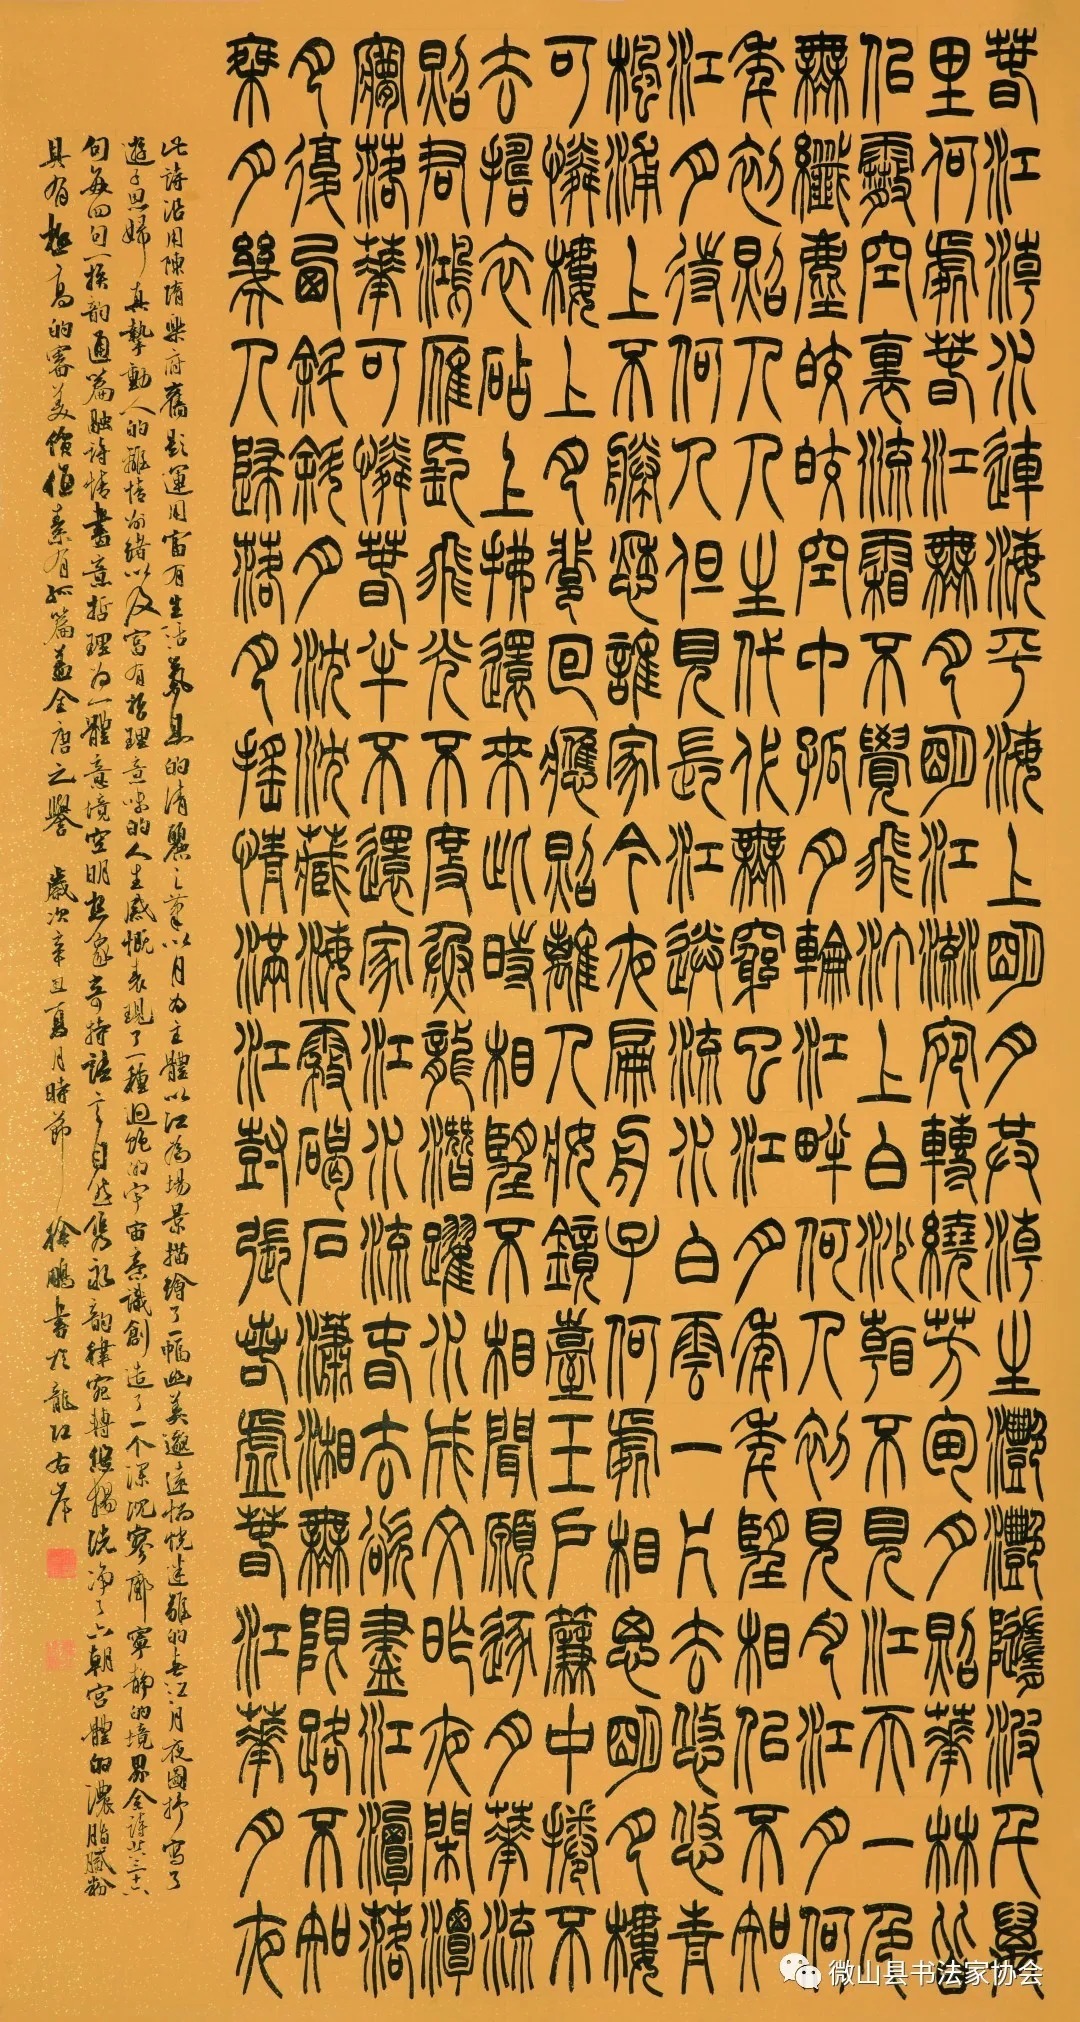 春江潮水連海平海上明月共潮生灩灩隨波千萬
里何處春江無月明江流宛轉繞芳甸月照華林皆
似霰空裏流霜不覺飛汀上白沙看不見江天一色
無纖塵皎皎空中孤月輪江畔何人初見月江月何
年初照人人生代代無窮已江月年年望相似不知
江月待何人但見長江送流水白雲一片去悠悠青
楓浦上不勝愁誰家今夜扁舟子何處相思明月樓
可憐樓上月裴回應照離人妝鏡臺玉戶簾中捲不
去擣衣砧上拂還來此時相望不相聞願逐月華流
照君鴻雁長飛光不度魚龍潛躍水成文昨夜閒潭
夢落華可憐春半不還家江水流春去欲盡江潭落
月復西斜斜月沈沈藏海霧碣石瀟湘無限路不知
乘月幾人歸落月搖情滿江樹張若虛春江華月夜
此詩沿用陳隋樂府舊題運用富有生活氣息的清麗之筆以月為主體以江為場景描繪了一幅幽美邈遠惝恍迷離的春江月夜圖抒寫了
遊子思婦真摯動人的離情別緒以及富有哲理意味的人生感慨表現了一種迥絕的宇宙意識創造了一个深沉寥廓寧靜的境界全詩共三十六
句每四句一換韻通篇融詩情畫意哲理為一體意境空明想象奇特語言自然雋永韻律宛轉悠揚洗淨了六朝宮體的濃脂膩粉
具有極高的審美價值素有孤篇蓋全唐之譽 歲次辛丑夏月時節 徐鵬書於龍江右岸
微山县书法家协会